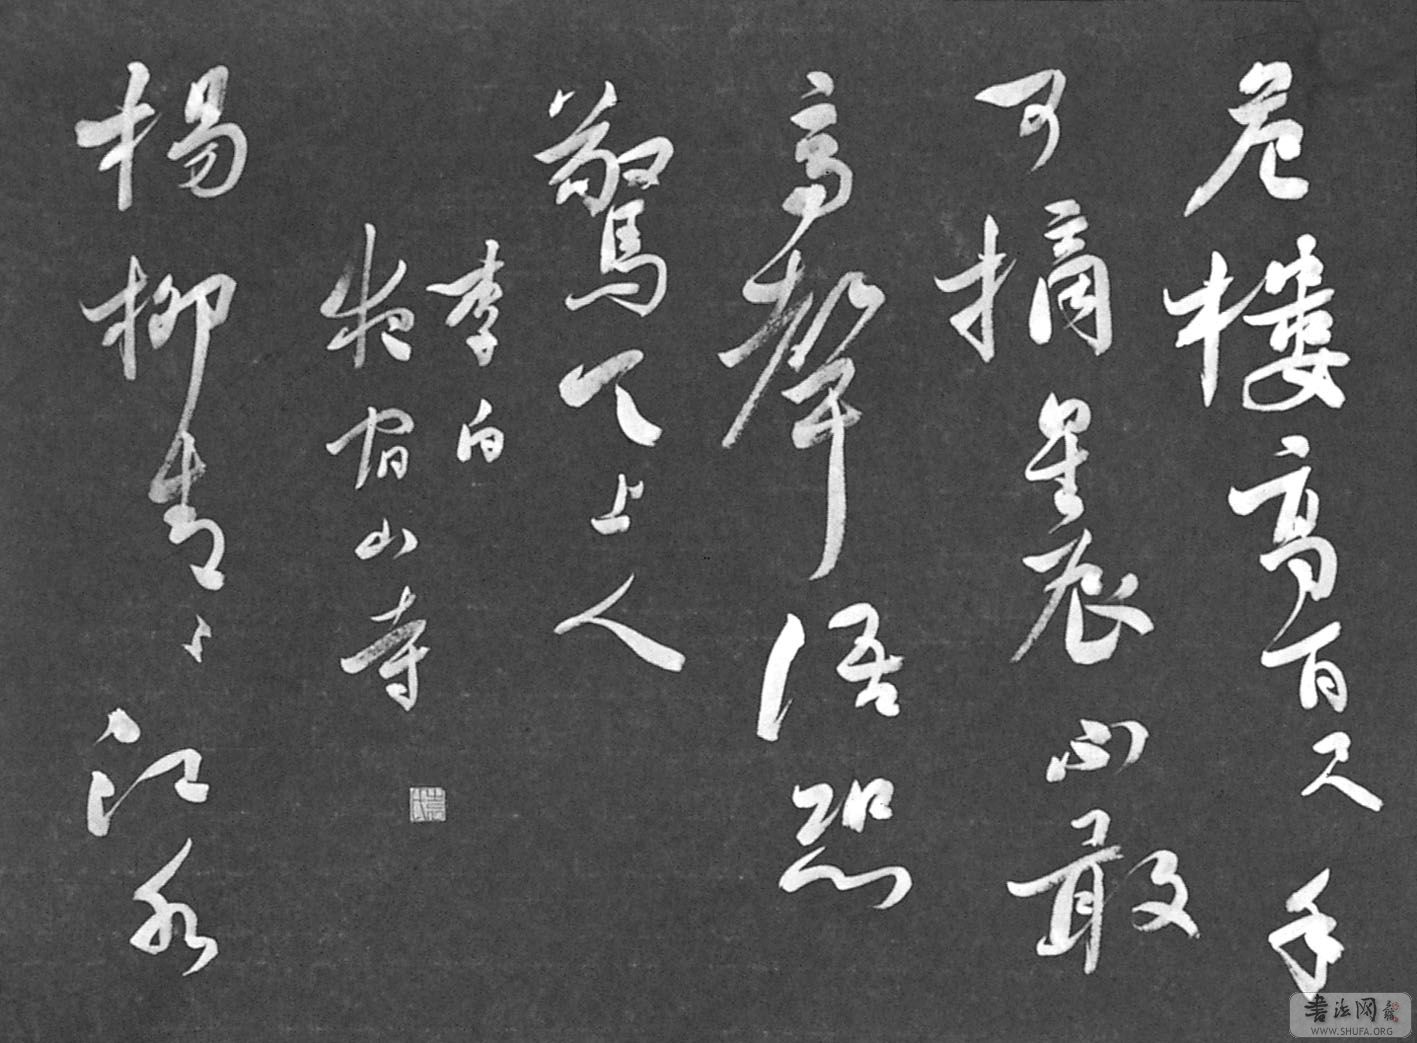 危樓高百尺手
可摘星辰不敢
高聲語恐
驚天上人
李白
夜宿山寺
楊柳青々江水
書法网
WWW.SHUFA.ORG